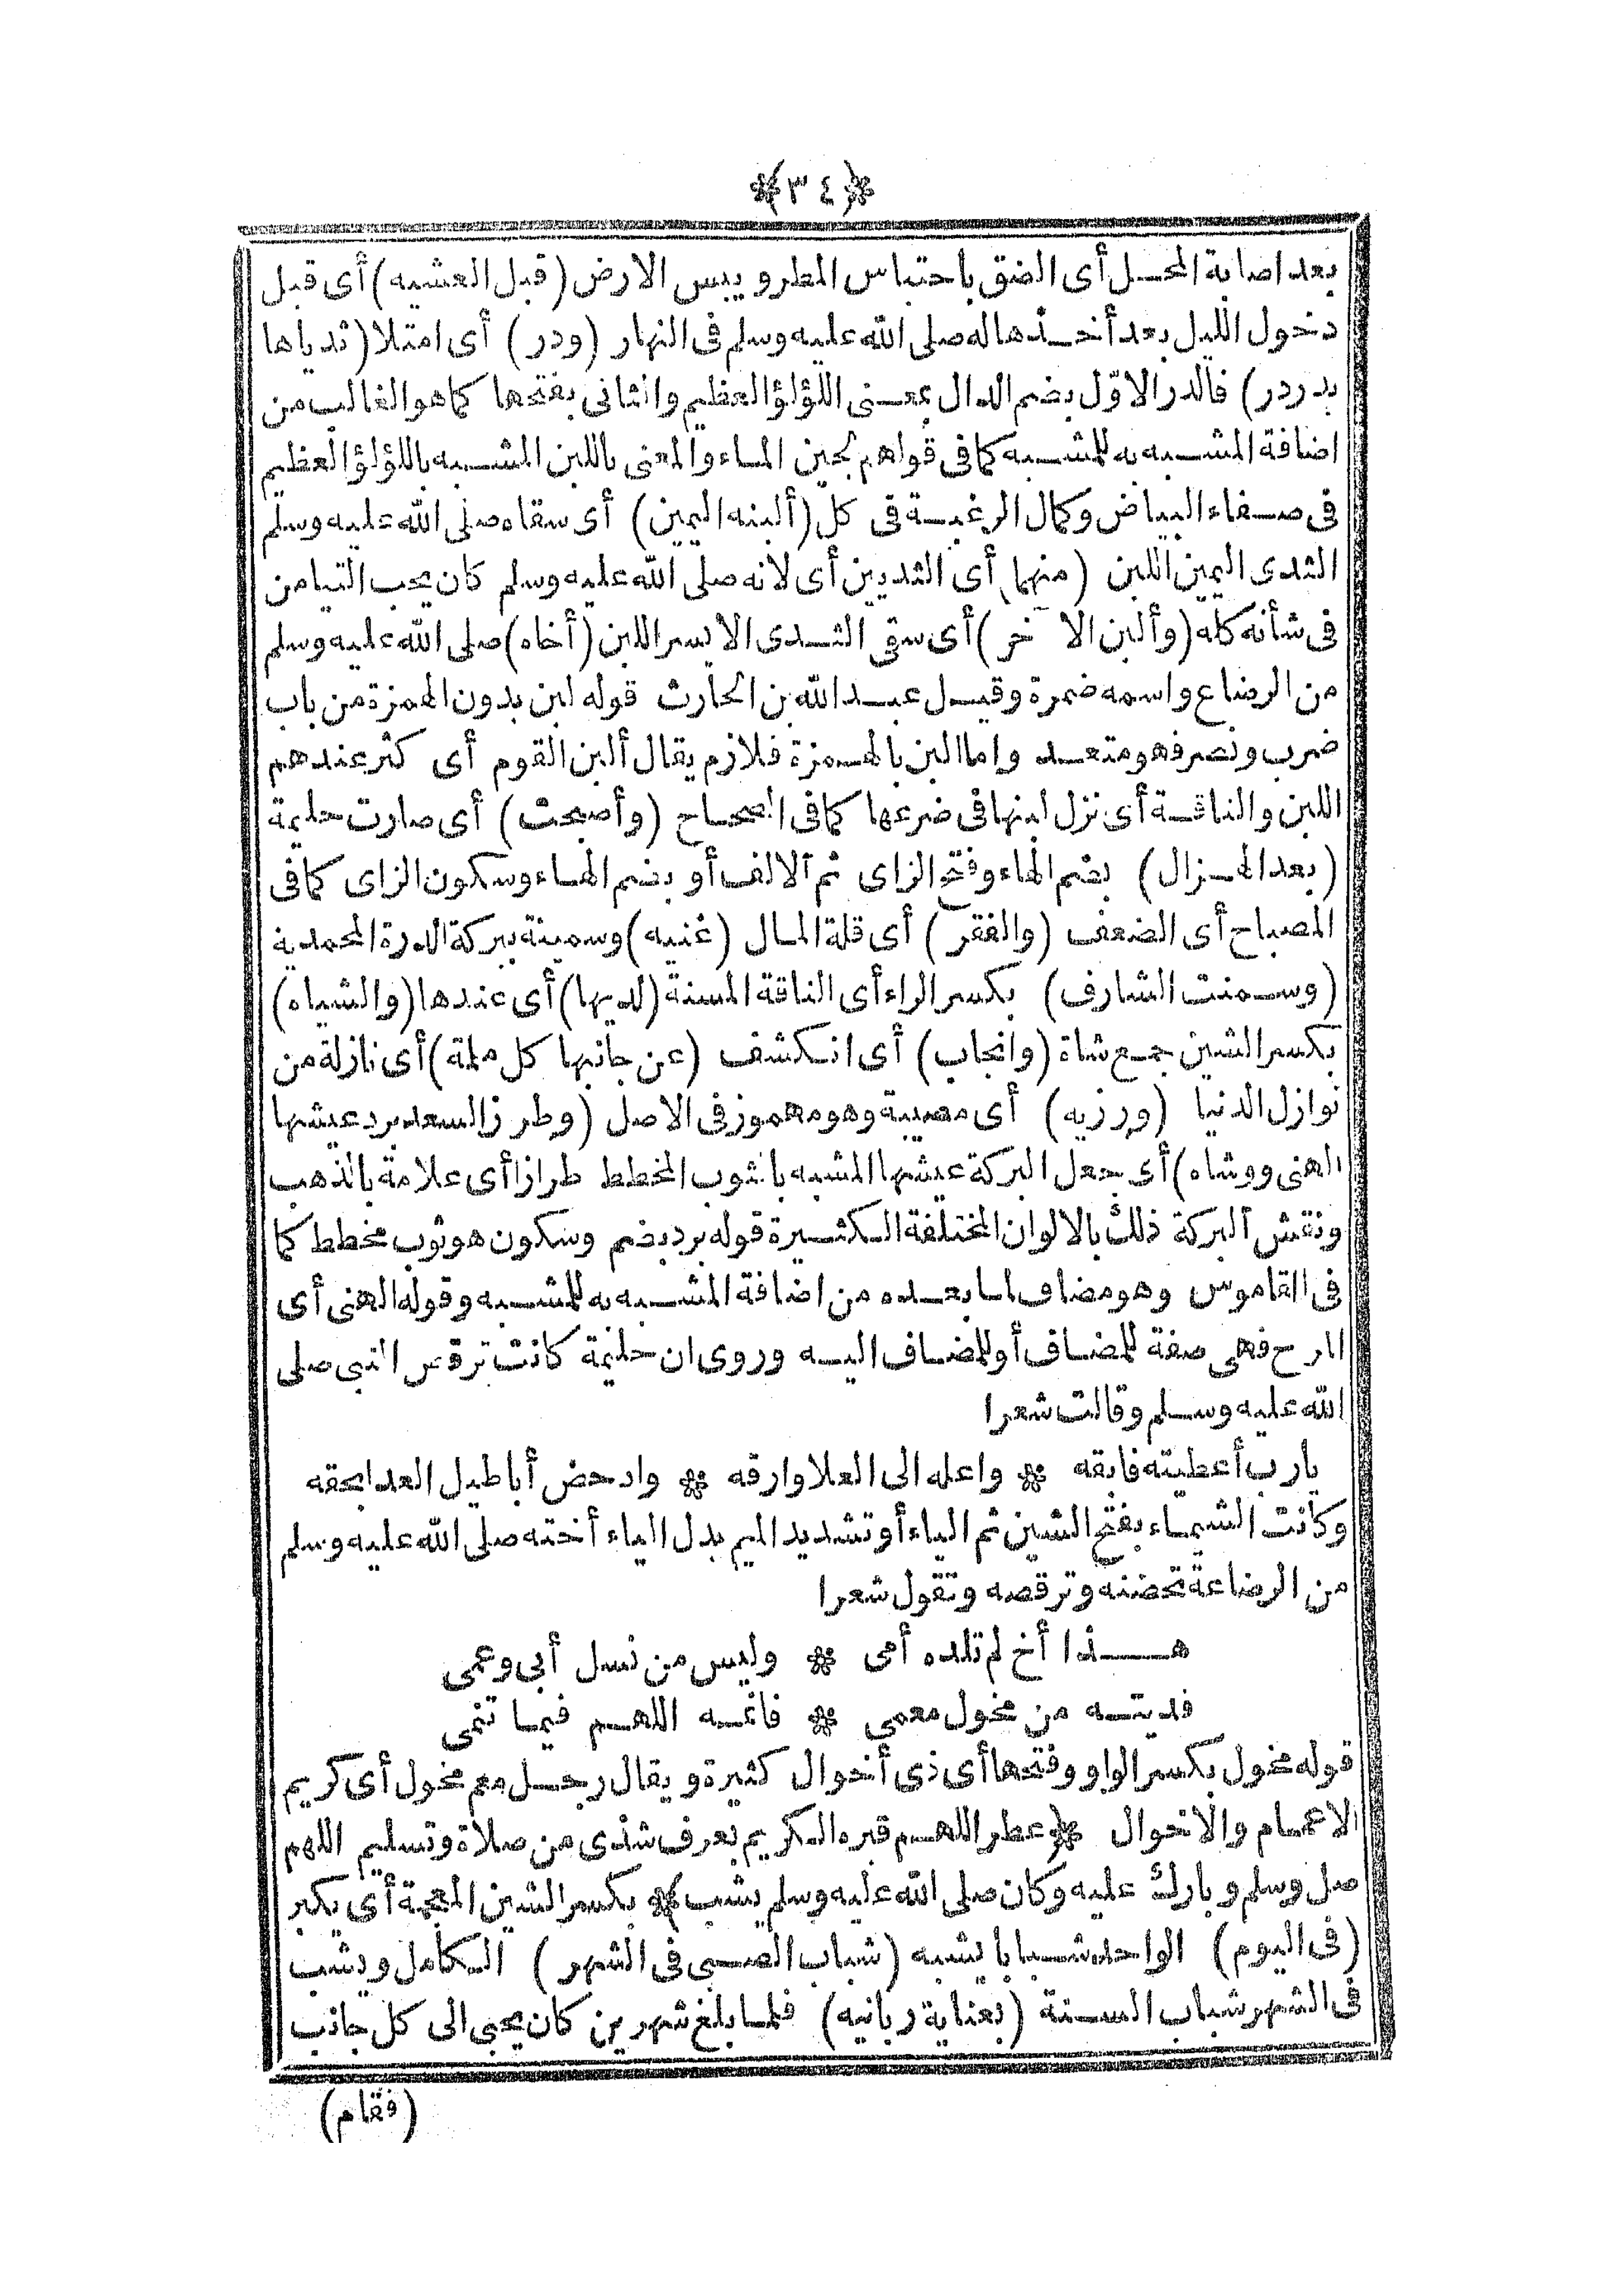 ❊(٣٤)❊
بعد اصابة المحل أى الضق باحتباس المطر ويبس الارض (قبل العشيه) أى قبل
دخول الليل بعد أخذها له صلى الله عليه وسلم فى النهار (ودر) أى امتلا (ثدياها
بدر در) فالدر الاوّل بضم الدال بمعنى اللؤلؤ العظيم والثانى بفتحها كما هو الغالب من
اضافة المشبه به للمشبه كما فى قولهم لجين الماء والمعنى باللبن المشبه باللؤلؤ العظيم
فى صفاء البياض وكمال الرغبة فى كل (ألبنه اليمين) أى سقاه صلى الله عليه وسلم
الثدى اليمين اللبن (منهما) أى الثديين أى لانه صلى الله عليه وسلم كان يحب التيامن
فى شأنه كله (وألبن الآخر) أى سقى الثدى الايسر اللبن (أخاه) صلى الله عليه وسلم
من الرضاع واسمه ضمرة وقيل عبد الله بن الحارث قوله لبن بدون الهمزة من باب
ضرب ونصر فهو متعد واما البن بالهمزة فلازم يقال ألبن القوم أى كثر عندهم
اللبن والناقة أى نزل لبنها فى ضرعها كما فى الصحاح (وأصبحت) أى صارت حليمة
(بعد الهزال) بضم الهاء وفتح الزاى ثم الالف أو بضم الهاء وسكون الزاى كما فى
المصباح أى الضعف (والفقر) أى قلة المال (غنيه) وسمينة ببركة الدرة المحمدية
(وسمنت الشارف) بكسر الراء أى الناقة المسنة (لديها) أى عندها (والشياه)
بكسر الشين جمع شاة (وانجاب) أى انكشف (عن جانبها كل ملمة) أى نازلة من
نوازل الدنيا (ورزيه) أى مصيبة وهو مهموز فى الاصل (وطرز السعد برد عيشها
الهنى ووشاه) أى جعل البركة عيشها المشبه بالثوب المخطط طرازا أى علامة بالذهب
ونقش البركة ذلك بالالوان المختلفة الكثيرة قوله برد بضم وسكون هو ثوب مخطط كما
فى القاموس وهو مضاف لما بعده من اضافة المشبه به للمشبه وقوله الهنى أى
المرح فهى صفة للمضاف أو للمضاف اليه وروى ان حليمة كانت ترقص النبى صلى
الله عليه وسلم وقالت شعرا
يارب أعطيته فابقه ❊ واعله الى العلا وارقه ❊ وادحض أباطيل العدا بحقه
وكانت الشيماء بفتح الشين ثم الياء أو تشديد الميم بدل الياء أخته صلى الله عليه وسلم
من الرضاعة تحضنه وترقصه وتقول شعرا
هذا أخ لم تلده أمى ❊ وليس من نسل أبى وعمى
فديته من مخول معمى ❊ فانمه اللهم فيما تنمى
قوله مخول بكسر الواو وفتحها أى ذى أخوال كثيرة ويقال رجل معم مخول أى كريم
الاعمام والاخوال ❊(عطر اللهم قبره الكريم بعرف شذى من صلاة وتسليم اللهم
صل وسلم وبارك عليه وكان صلى الله عليه وسلم يشب)❊ بكسر الشين المعجمة أى يكبر
(فى اليوم) الواحد شبابا يشبه (شباب الصبى فى الشهر) الكامل ويشب
فى الشهر شباب السنة (بعناية ربانيه) فلما بلغ شهرين كان يحبى الى كل جانب
(فقام)